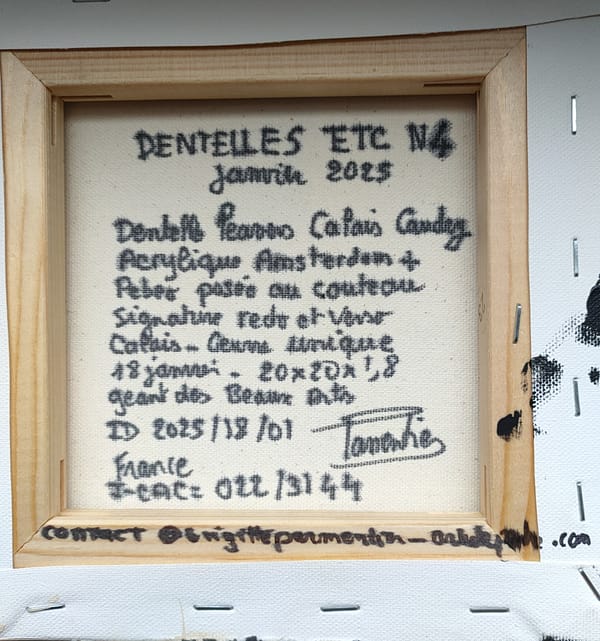 DENTELLES ETC N4
janvier 2025
Dentelle Leavers Calais Caudry
Acrylique Amsterdam +
Pebeo posée au couteau
Signature recto et Verso
Calais - Oeuvre unique
18 janvier - 20x20x1,8
geant des Beaux Arts
ID 2025/18/01
France
022/3144
CONTACT @brigittepermentier .com